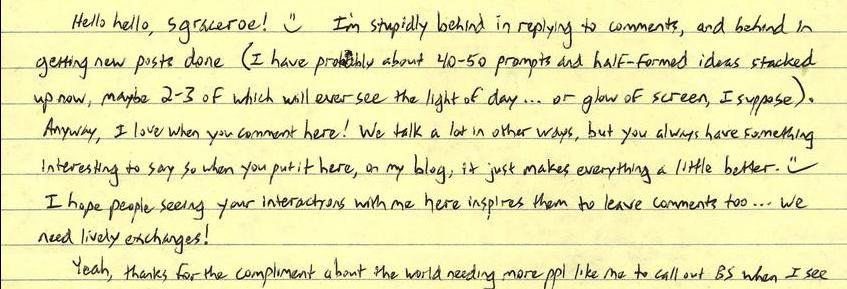 Hello hello, sgraceroe! :) I'm stupidly behind in replying to comments, and behind in
getting new posts done (I have probably about 40-50 prompts and half-formed ideas stacked
up now, maybe 2-3 of which will ever see the light of day... or glow of screen, I suppose).
Anyway, I love when you comment here! We talk a lot in other ways, but you always have something
interesting to say so when you put it here, on my blog, it just makes everything a little better. :)
I hope people seeing your interactions with me here inspires them to leave comments too... we
need lively exchanges!
Yeah, thanks for the compliment about the world needing more ppl like me to call out BS when I see